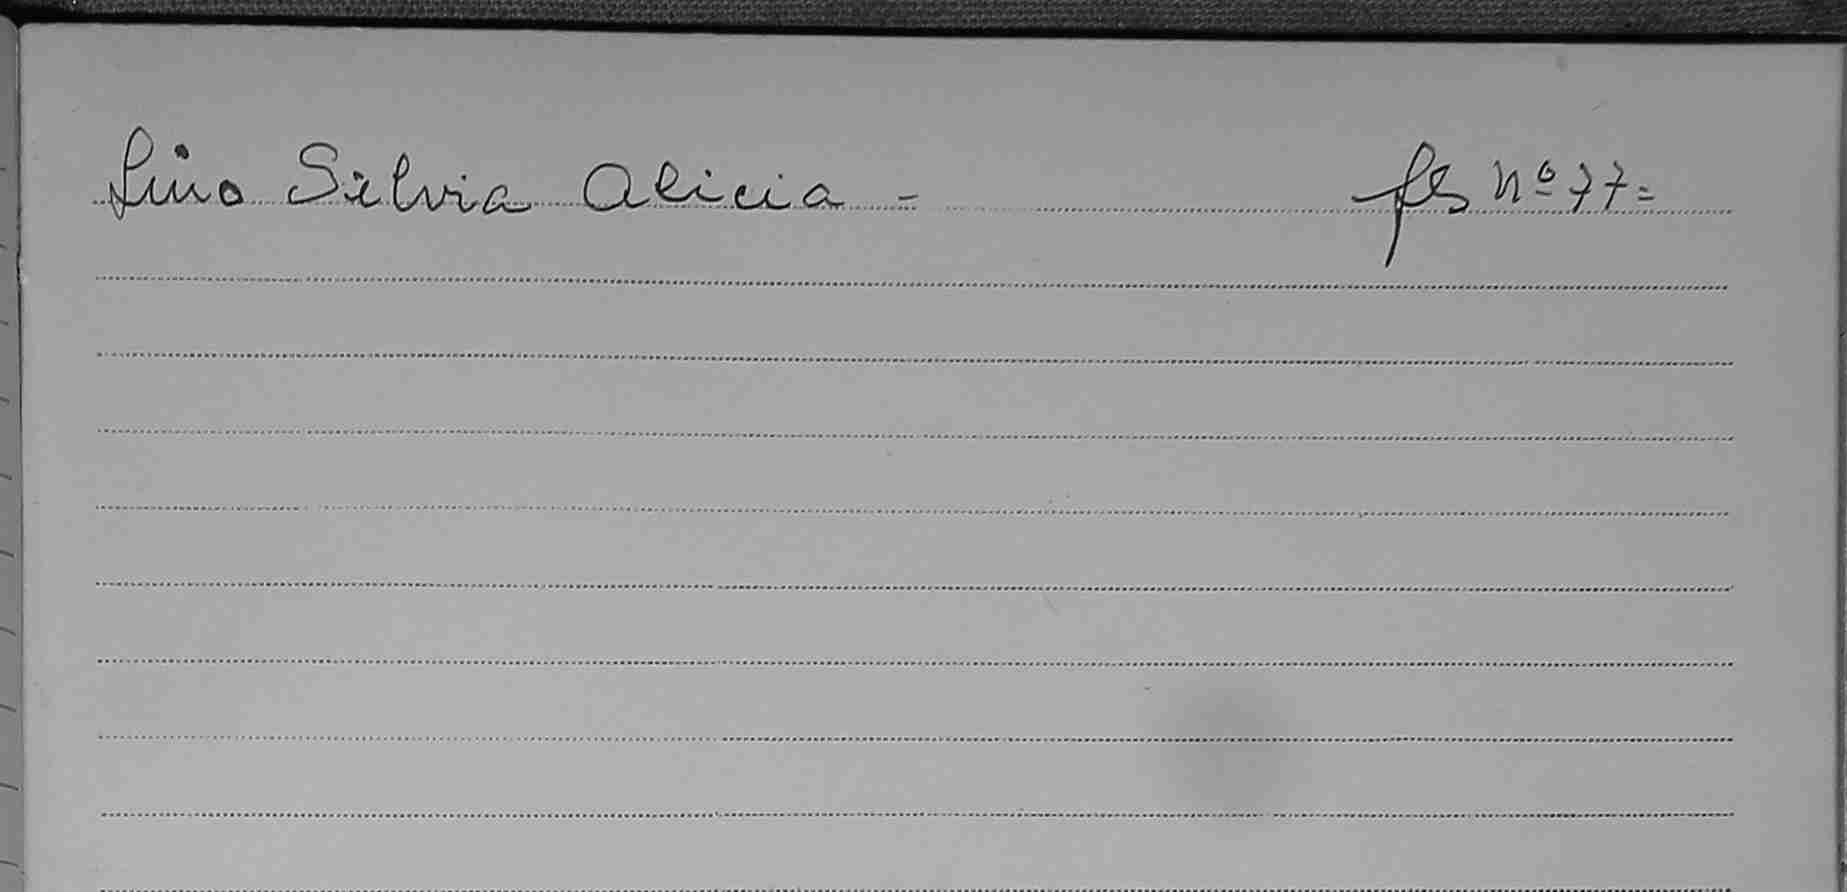 Lino Silvia Alicia - fs nº 77=